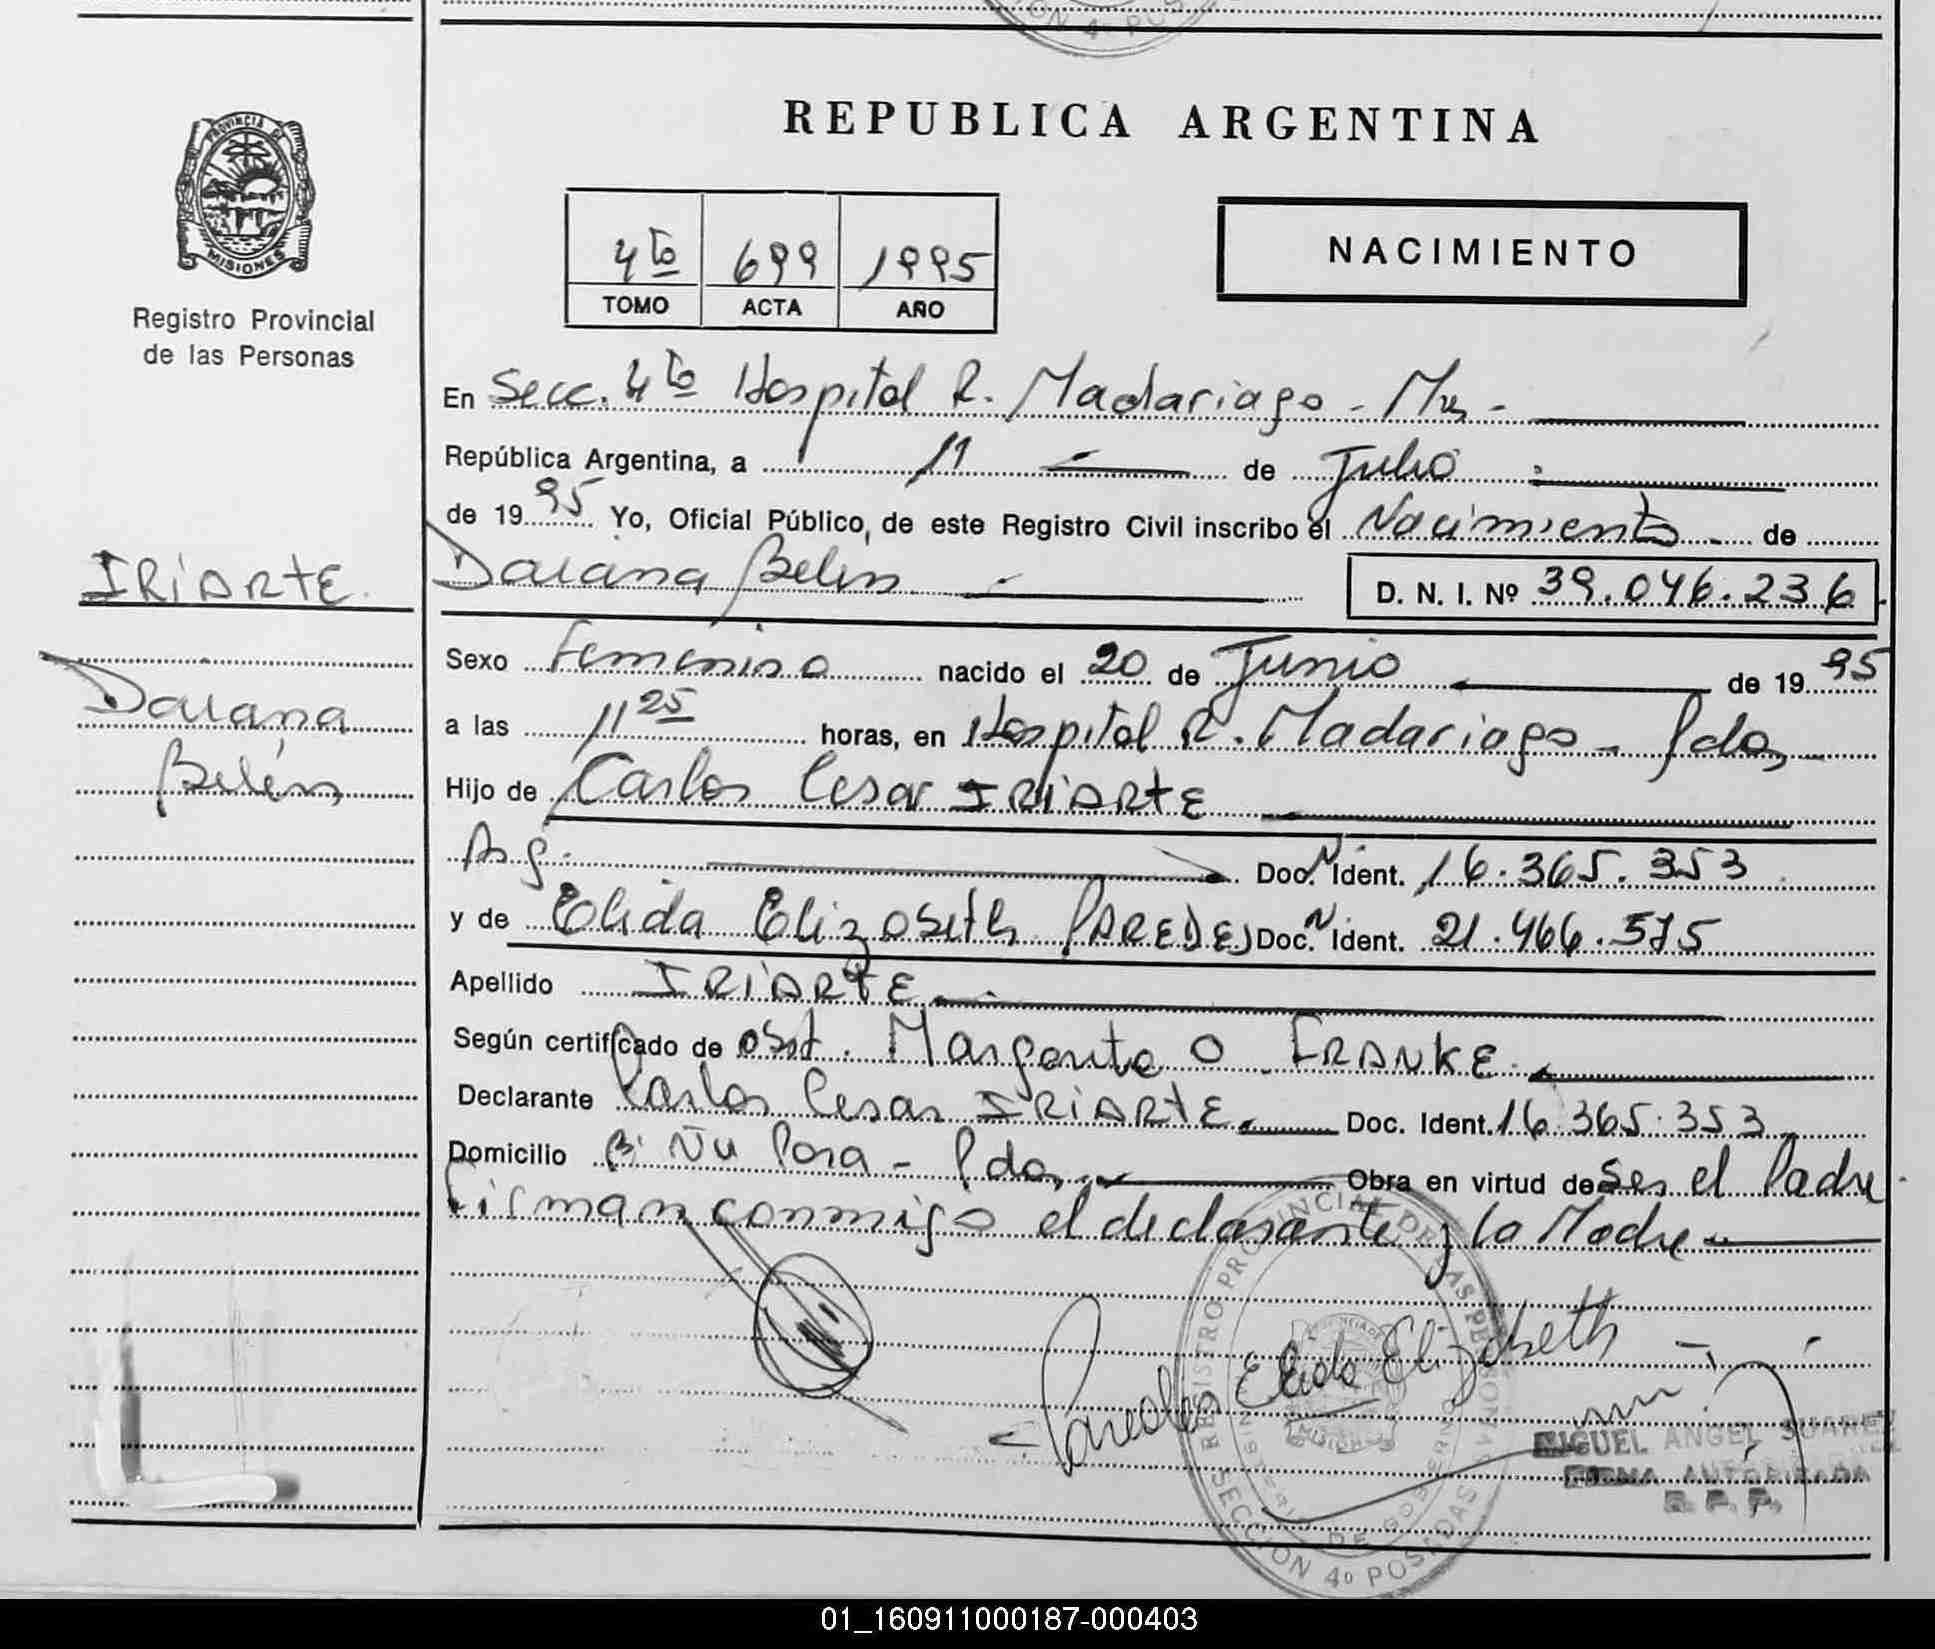 REPUBLICA ARGENTINA
PROVINCIA DE MISIONES
Registro Provincial
de las Personas
4to 699 1995
TOMO ACTA AÑO
NACIMIENTO
En Secc. 4to Hospital R. Madariaga - Mns -
República Argentina, a 11 de Julio
de 1995 Yo, Oficial Público, de este Registro Civil inscribo el Nacimiento de
IRIARTE
Daiana Belén D. N. I. Nº 39.046.236
Daiana
Belén
Sexo Femenino nacido el 20 de Junio de 1995
a las 11 25 horas, en Hospital R. Madariaga - Pdas
Hijo de Carlos Cesar IRIARTE
Arg. Doc. N. Ident. 16.365.353
y de Elida Elizabeth PAREDES Doc. N. Ident. 21.466.575
Apellido IRIARTE
Según certificado de obst. Margarita O FRANKE
Declarante Carlos Cesar IRIARTE Doc. Ident. 16.365.353
Domicilio Bº Ñu Pora - Pdas Obra en virtud de Ser el Padre
Firman conmigo el declarante y la Madre
Paredes Elida Elizabeth
REGISTRO PROVINCIAL DE LAS PERSONAS
MINISTERIO DE GOBIERNO
SECCION 4º POSADAS
MIGUEL ANGEL SUAREZ
FIRMA AUTORIZADA
R. P. P.
01_160911000187-000403